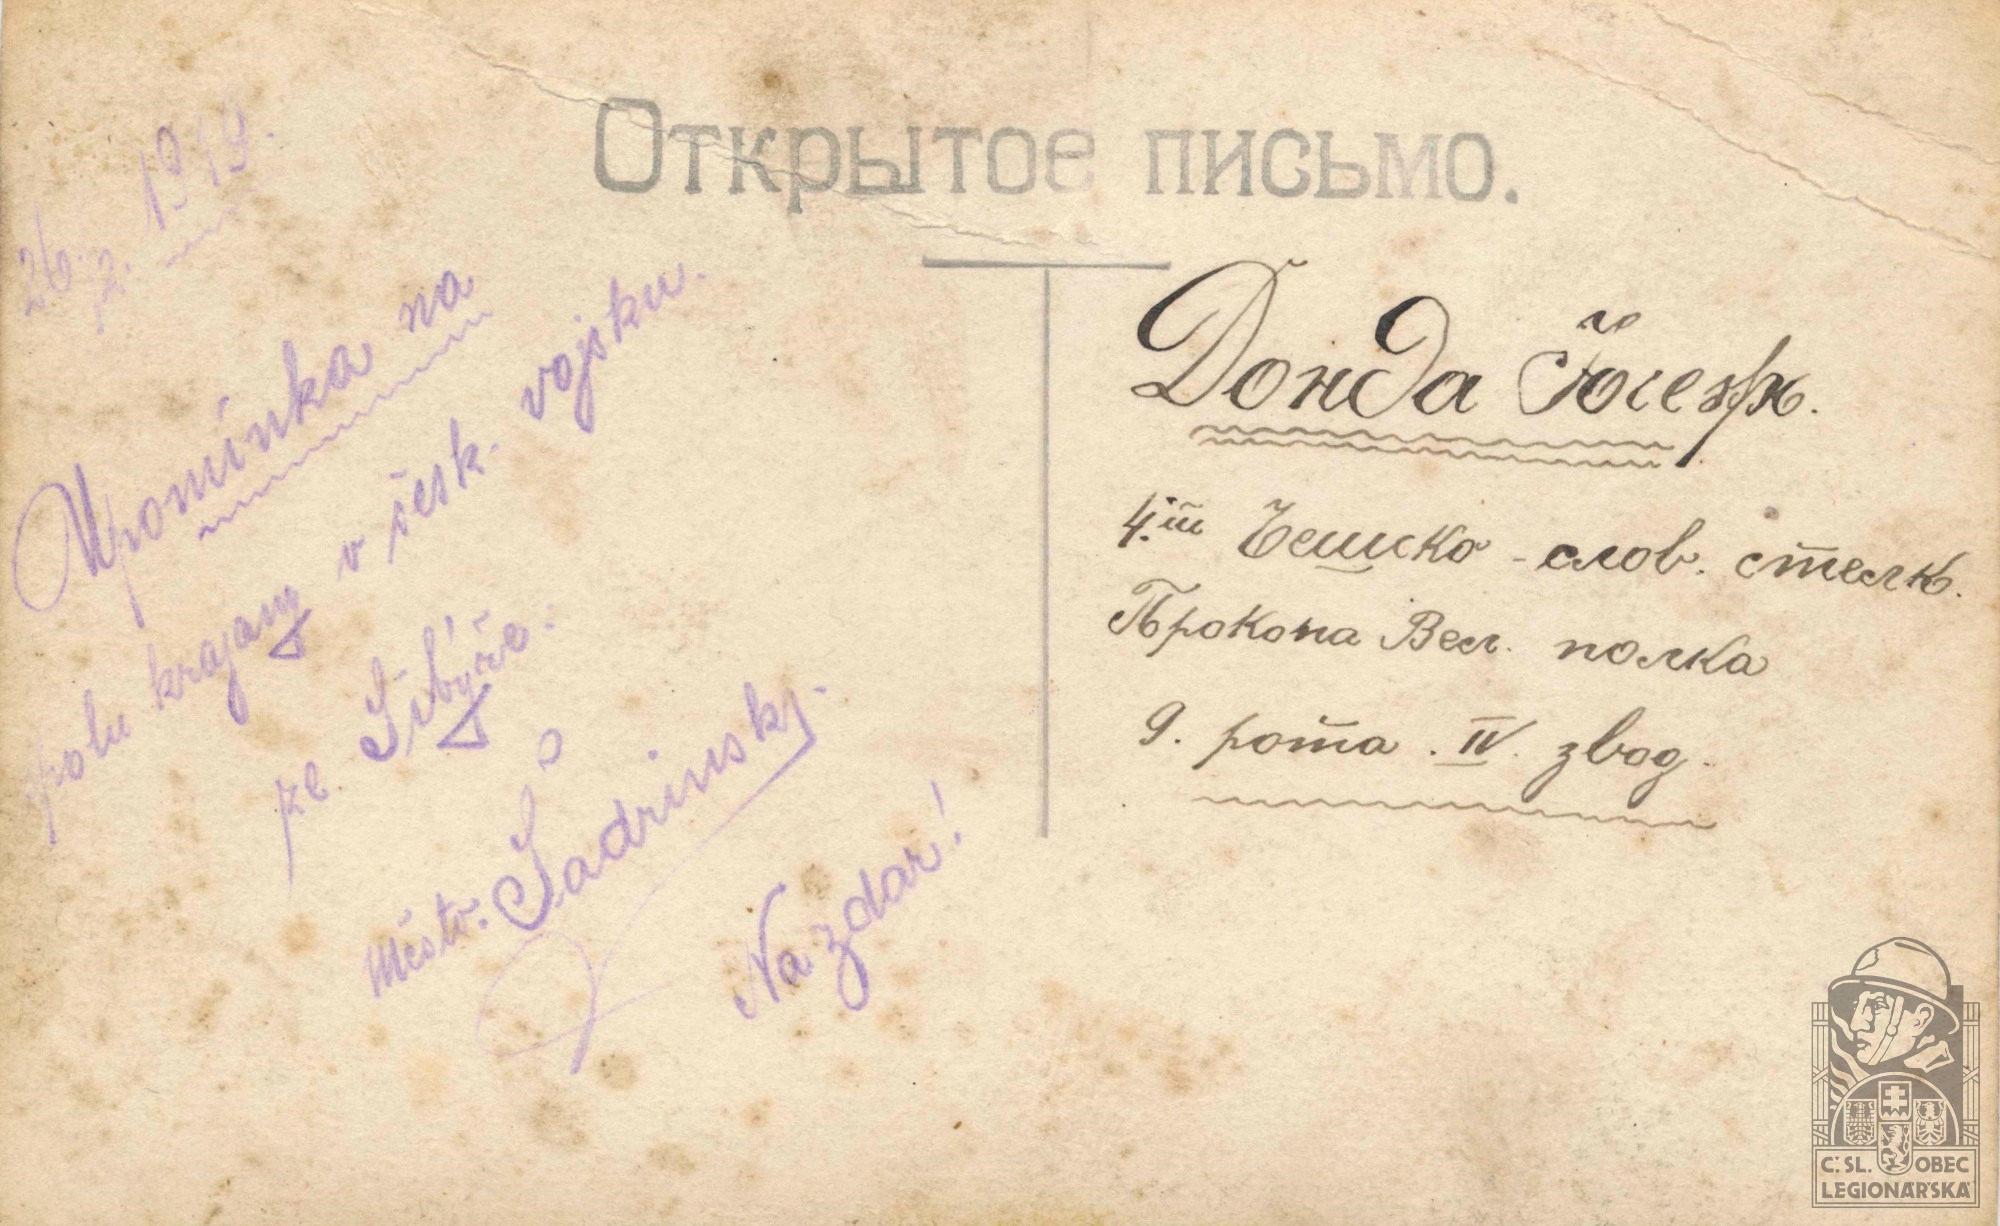 Открытое письмо.
26. 2. 1919.
Upomínka na
spolu krajany v česk. vojsku.
ze Sibýře:
Město. Šadrinsk.
Na zdar!
Донда Йосефъ.
4.ій Чешско-слов. стелк.
Прокопа Вел. полка
9. рота. IV. звод.
Č. SL. OBEC
LEGIONÁŘSKÁ